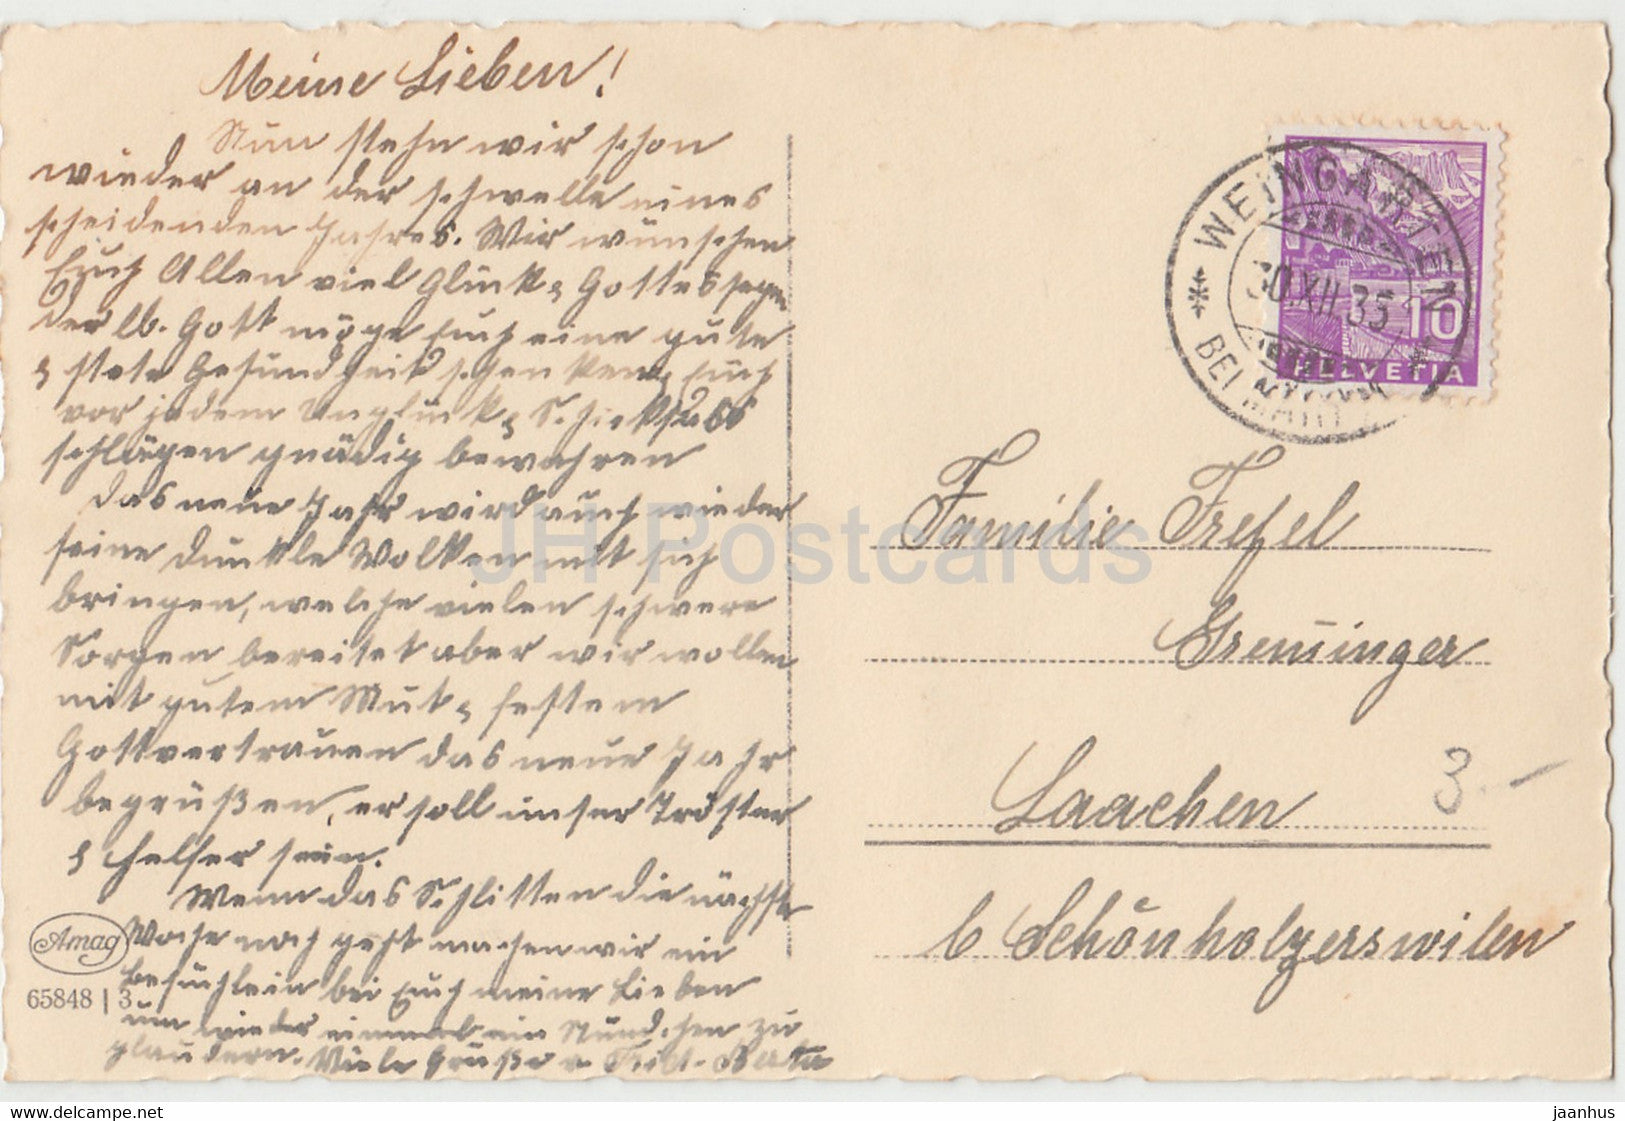 Meine Lieben!
Nun stehn wir schon
wieder an der schwelle eines
scheidenden Jahres. Wir wünschen
Euch Allen viel Glück & Gottessegen
der lb. Gott möge Euch eine gute
& stete Gesundheit schenken, Euch
vor jedem Unglück & Schicksals
schlägen gnädig bewahren
das neue Jahr wird auch wieder
seine dunkle Wolken mit sich
bringen, welche vielen schwere
Sorgen bereitet aber wir wollen
mit gutem Mut & festem
Gottvertrauen das neue Jahr
begrüßen, er soll unser Tröster
& Helfer sein.
Wenn das Schlitten die nächste
Woche noch geht machen wir ein
Besüchlein bei Euch meine Lieben
um wieder einmal ein Stündchen zu
plaudern. Viele Grüße v.
Amag
65848 | 3
WEINGARTEN
30.XII.35
BEI
10
HELVETIA
Familie Frefel
Greminger
Laachen
b Schönholzerswilen
3.-
JH Postcards
www.delcampe.net
jaanhus